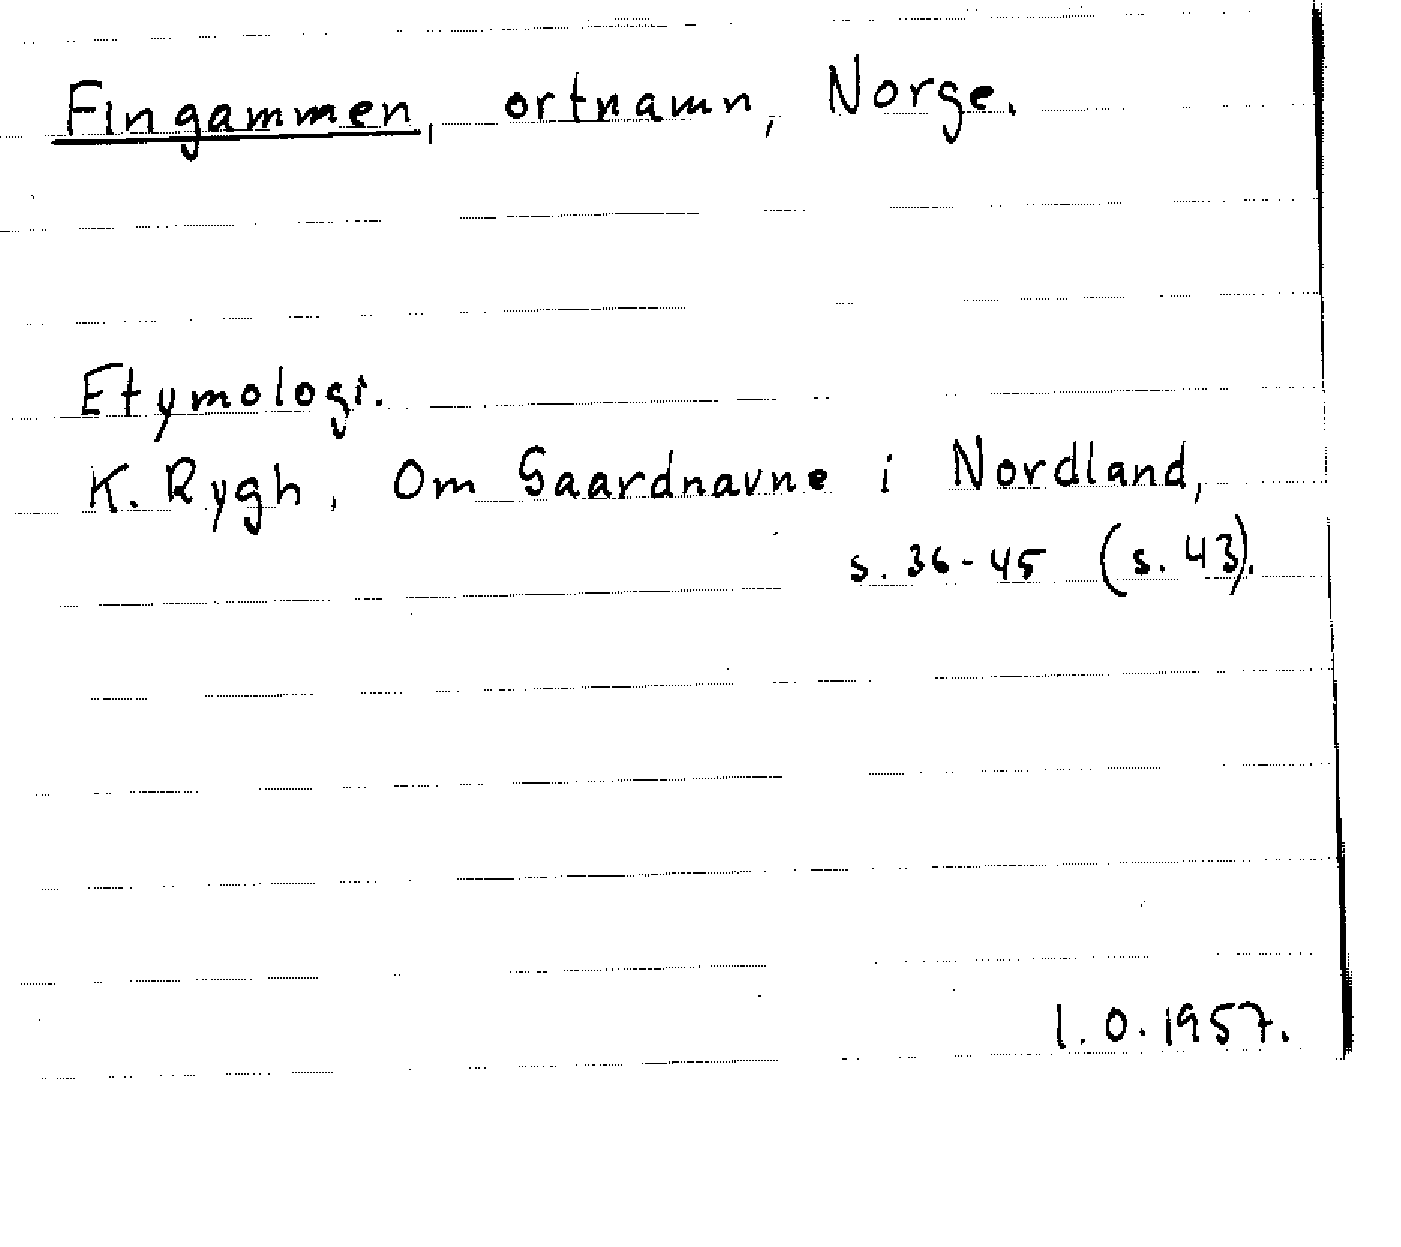 Fingammen, ortnamn, Norge.
Etymologi.
K. Rygh, Om Gaardnavne i Nordland,
s. 36-45 (s. 43).
I.O. 1957.